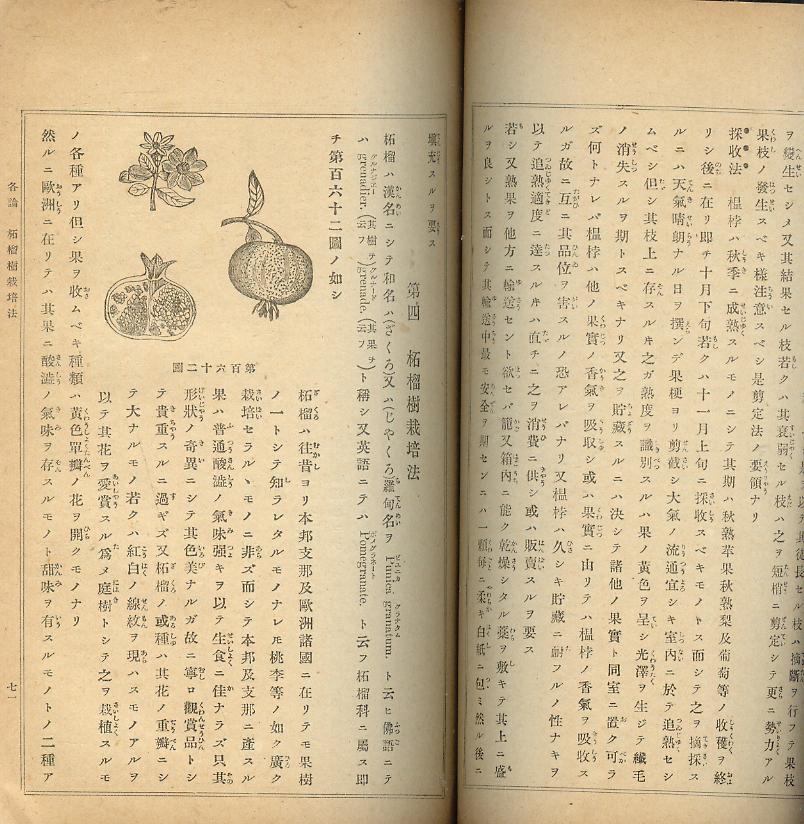 ヲ變生セシメ又其結果セル枝若クハ其衰弱セル枝ハ之ヲ短梢ニ剪定シテ更ニ勢力アル
果枝ノ發生スベキ樣注意スベシ是剪定法ノ要領ナリ
採收法 榲桲ハ秋季ニ成熟スルモノニシテ其期ハ秋熟苹果秋熟梨及葡萄等ノ收穫ヲ終
リシ後ニ在リ即チ十月下旬若クハ十一月上旬ニ採收スベキモノトス而シテ之ヲ摘採ス
ルニハ天氣晴朗ナル日ヲ撰ンデ果梗ヨリ剪截シ大氣ノ流通宜シキ室内ニ於テ追熟セシ
ムベシ但シ其枝上ニ存スルキ之ガ熟度ヲ識別スルハ果ノ黄色ヲ呈シ光澤ヲ生ジテ纖毛
ノ消失スルヲ期トスベキナリ又之ヲ貯藏スルニハ決シテ諸他ノ果實ト同室ニ置ク可ラ
ズ何トナレバ榲桲ハ他ノ果實ノ香氣ヲ吸収シ或ハ果實ニ由リテハ榲桲ノ香氣ヲ吸收ス
ルガ故ニ互ニ其品位ヲ害スルノ恐アレバナリ又榲桲ハ久シキ貯藏ニ耐フルノ性ナキヲ
以テ追熟適度ニ達スルキハ直チニ之ヲ消費ニ供シ或ハ販賣スルヲ要ス
若シ又熟果ヲ他方ニ輸送セント欲セバ籠又箱内ニ能ク乾燥シタル藁ヲ敷キテ其上ニ盛
ルヲ良シトス而シテ其輸送中最モ安全ヲ期センニハ一顆毎ニ柔キ白紙ニ包ミ然ル後ニ
塡充スルヲ要ス
第四 柘榴樹栽培法
柘榴ハ漢名ニシテ和名ハ(ざくろ)又ハ(じやくろ)羅甸名ヲ Punica granatum. ト云ヒ佛語ニテ
ハ grenadier,(其樹ヲ云フ) grenade,(其果ヲ云フ) ト稱シ又英語ニテハ Pomegranate. ト云フ柘榴科ニ屬ス即
チ第百六十二圖ノ如シ
第百六十二圖
柘榴ハ往昔ヨリ本邦支那及歐洲諸國ニ在リテモ果樹
ノ一トシテ知ラレタルモノナレ𪜈桃李等ノ如ク廣ク
栽培セラルヽモノニ非ズ而シテ本邦及支那ニ產スル
果ハ普通酸澁ノ氣味强キヲ以テ生食ニ佳ナラズ只其
形狀ノ奇異ニシテ其色美ナルガ故ニ寧ロ觀賞品トシ
テ貴重スルニ過ギズ又柘榴ノ或種ハ其花ノ重瓣ニシ
テ大ナルモノ若クハ紅白ノ線紋ヲ現ハスモノアルヲ
以テ其花ヲ愛賞スル爲メ庭樹トシテ之ヲ栽植スルモ
ノ各種アリ但シ果ヲ收ムベキ種類ハ黄色單瓣ノ花ヲ開クモノナリ
然ルニ歐洲ニ在リテハ其果ニ酸澁ノ氣味ヲ存スルモノト甜味ヲ有スルモノトノ二種ア
各論 柘榴樹栽培法
七一